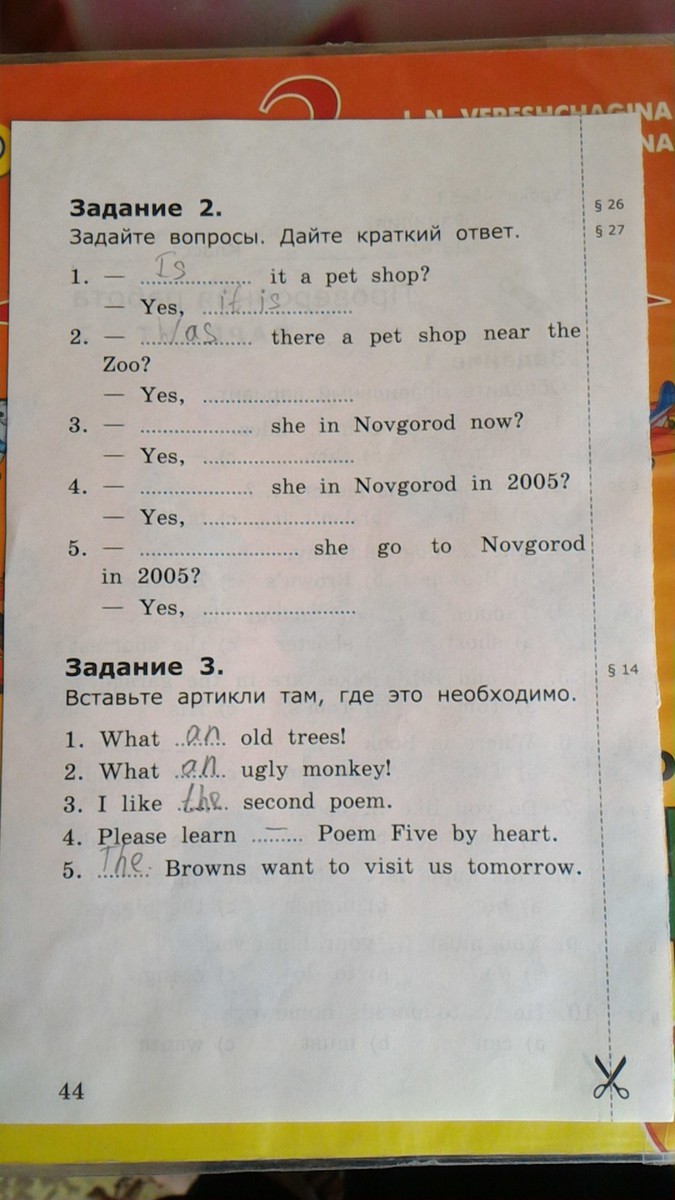 I. N. VERESHCHAGINA
NA
Задание 2.
§ 26
Задайте вопросы. Дайте краткий ответ.
§ 27
1. — Is it a pet shop?
— Yes, it is
2. — Was there a pet shop near the
Zoo?
— Yes, ..........................
3. — .................... she in Novgorod now?
— Yes, ..........................
4. — .................... she in Novgorod in 2005?
— Yes, ..........................
5. — ........................... she go to Novgorod
in 2005?
— Yes, ..........................
Задание 3.
§ 14
Вставьте артикли там, где это необходимо.
1. What an old trees!
2. What an ugly monkey!
3. I like the second poem.
4. Please learn — Poem Five by heart.
5. The Browns want to visit us tomorrow.
44